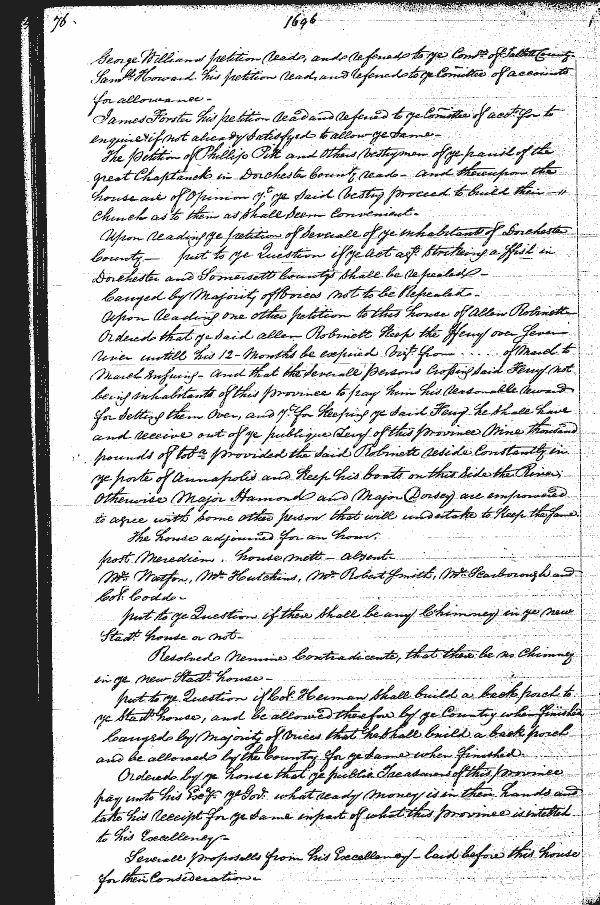 76.
1696
George Williams petition read, and refered to ye Comrs. of Talbott County
Samll. Howard his petition read, and refered to ye Comittee of accounts
for allowance -
James Forster his petition read and refered to ye Comittee of acots. for to
enquire if not already Satisfyed to allow ye Same -
The Petition of Phillip Pitt and others Vestrymen of ye parish of the
great Choptanck in Dorchester County read - and thereupon the
house are of Opinion yt. ye Said Vestry proceed to build their
Church as to them as shall Seem Convenient. -
Upon reading ye petition of Severall of ye inhabitants of Dorchester
County - put to ye Question if ye Act agt. Strikeing a ffish in
Dorchester and Somersett Countys shall be repealed -
Carryed by Majority of Voices not to be Repealed. -
Upon reading one other petition to this house of Allen Robinett
Ordered that ye said allen Robinett Keep the fferry over Severn
river untill his 12 Months be expired Vizt. from . . . . . of March to
March Ensuing - And that the Severall persons Crossing said Ferry not
being inhabitants of this Province to pay him his reasonable reward
for Setting them Over, and yt. for keeping ye Said Ferry he shall have
and receive out of ye publique Levy of this Province Nine thousand
pounds of toba. provided the Said Robinett reside Constantly in
ye porte of Annapolis and Keep his boats on this Side the River;
Otherwise Major Hamond and Major Dorsey are impowered
to agree with some other person that will undertake to Keep the Same
The house adjourned for an hour.
post Merediem. house mett - absent
Mr. Watson, Mr. Hutchins, Mr. Robert Smith, Mr. Scarborough and
Col. Codd -
put to ye Question if there Shall be any Chimney in ye new
Stadt house or not -
Resolved Nemine Contradicente, that there be no Chimney
in ye new Stadt house -
put to ye Question if Col. Herman shall build a back porch to
ye Stadt house, and be allowed therefore by ye Country when finished
Carryed by Majority of Voices that he shall build a back porch
and be allowed by the Country for ye Same when finished.
Ordered by ye house that ye public Treasurers of this province
pay unto his Exy. ye Gov. what ready Money is in their hands and
take his receipt for ye Same in part of what this Province is indebted
to his Excellency -
Severall proposalls from his Excellency - laid before this house
for their Consideration -